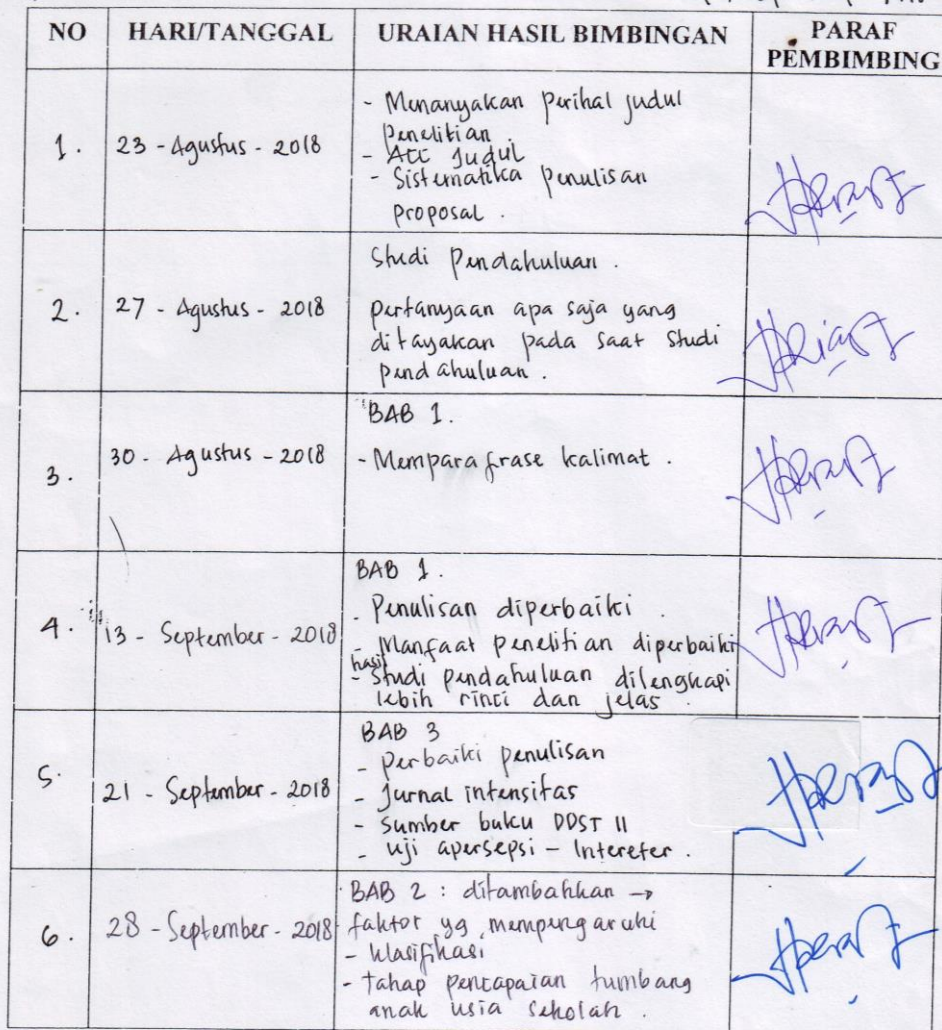 NO HARI/TANGGAL URAIAN HASIL BIMBINGAN PARAF PEMBIMBING
1. 23 - Agustus - 2018
- Menanyakan Perihal judul
Penelitian.
- Acc Judul
- Sistematika Penulisan
proposal.
2. 27 - Agustus - 2018
Studi Pendahuluan.
pertanyaan apa saja yang
ditayakan pada saat studi
pendahuluan.
3. 30 - Agustus - 2018
BAB 1.
- Memparafrase kalimat.
4. 13 - September - 2018
BAB 1.
- Penulisan diperbaiki.
- Manfaat penelitian diperbaiki
- hasil studi pendahuluan dilengkapi
lebih rinci dan jelas.
5. 21 - September - 2018
BAB 3
- perbaiki penulisan
- Jurnal intensitas
- Sumber buku DDST II
- uji apersepsi - Intereter.
6. 28 - September - 2018
BAB 2 : ditambahkan →
faktor yg mempengaruhi
- klasifikasi
- tahap pencapaian tumbang
anak usia sekolah.